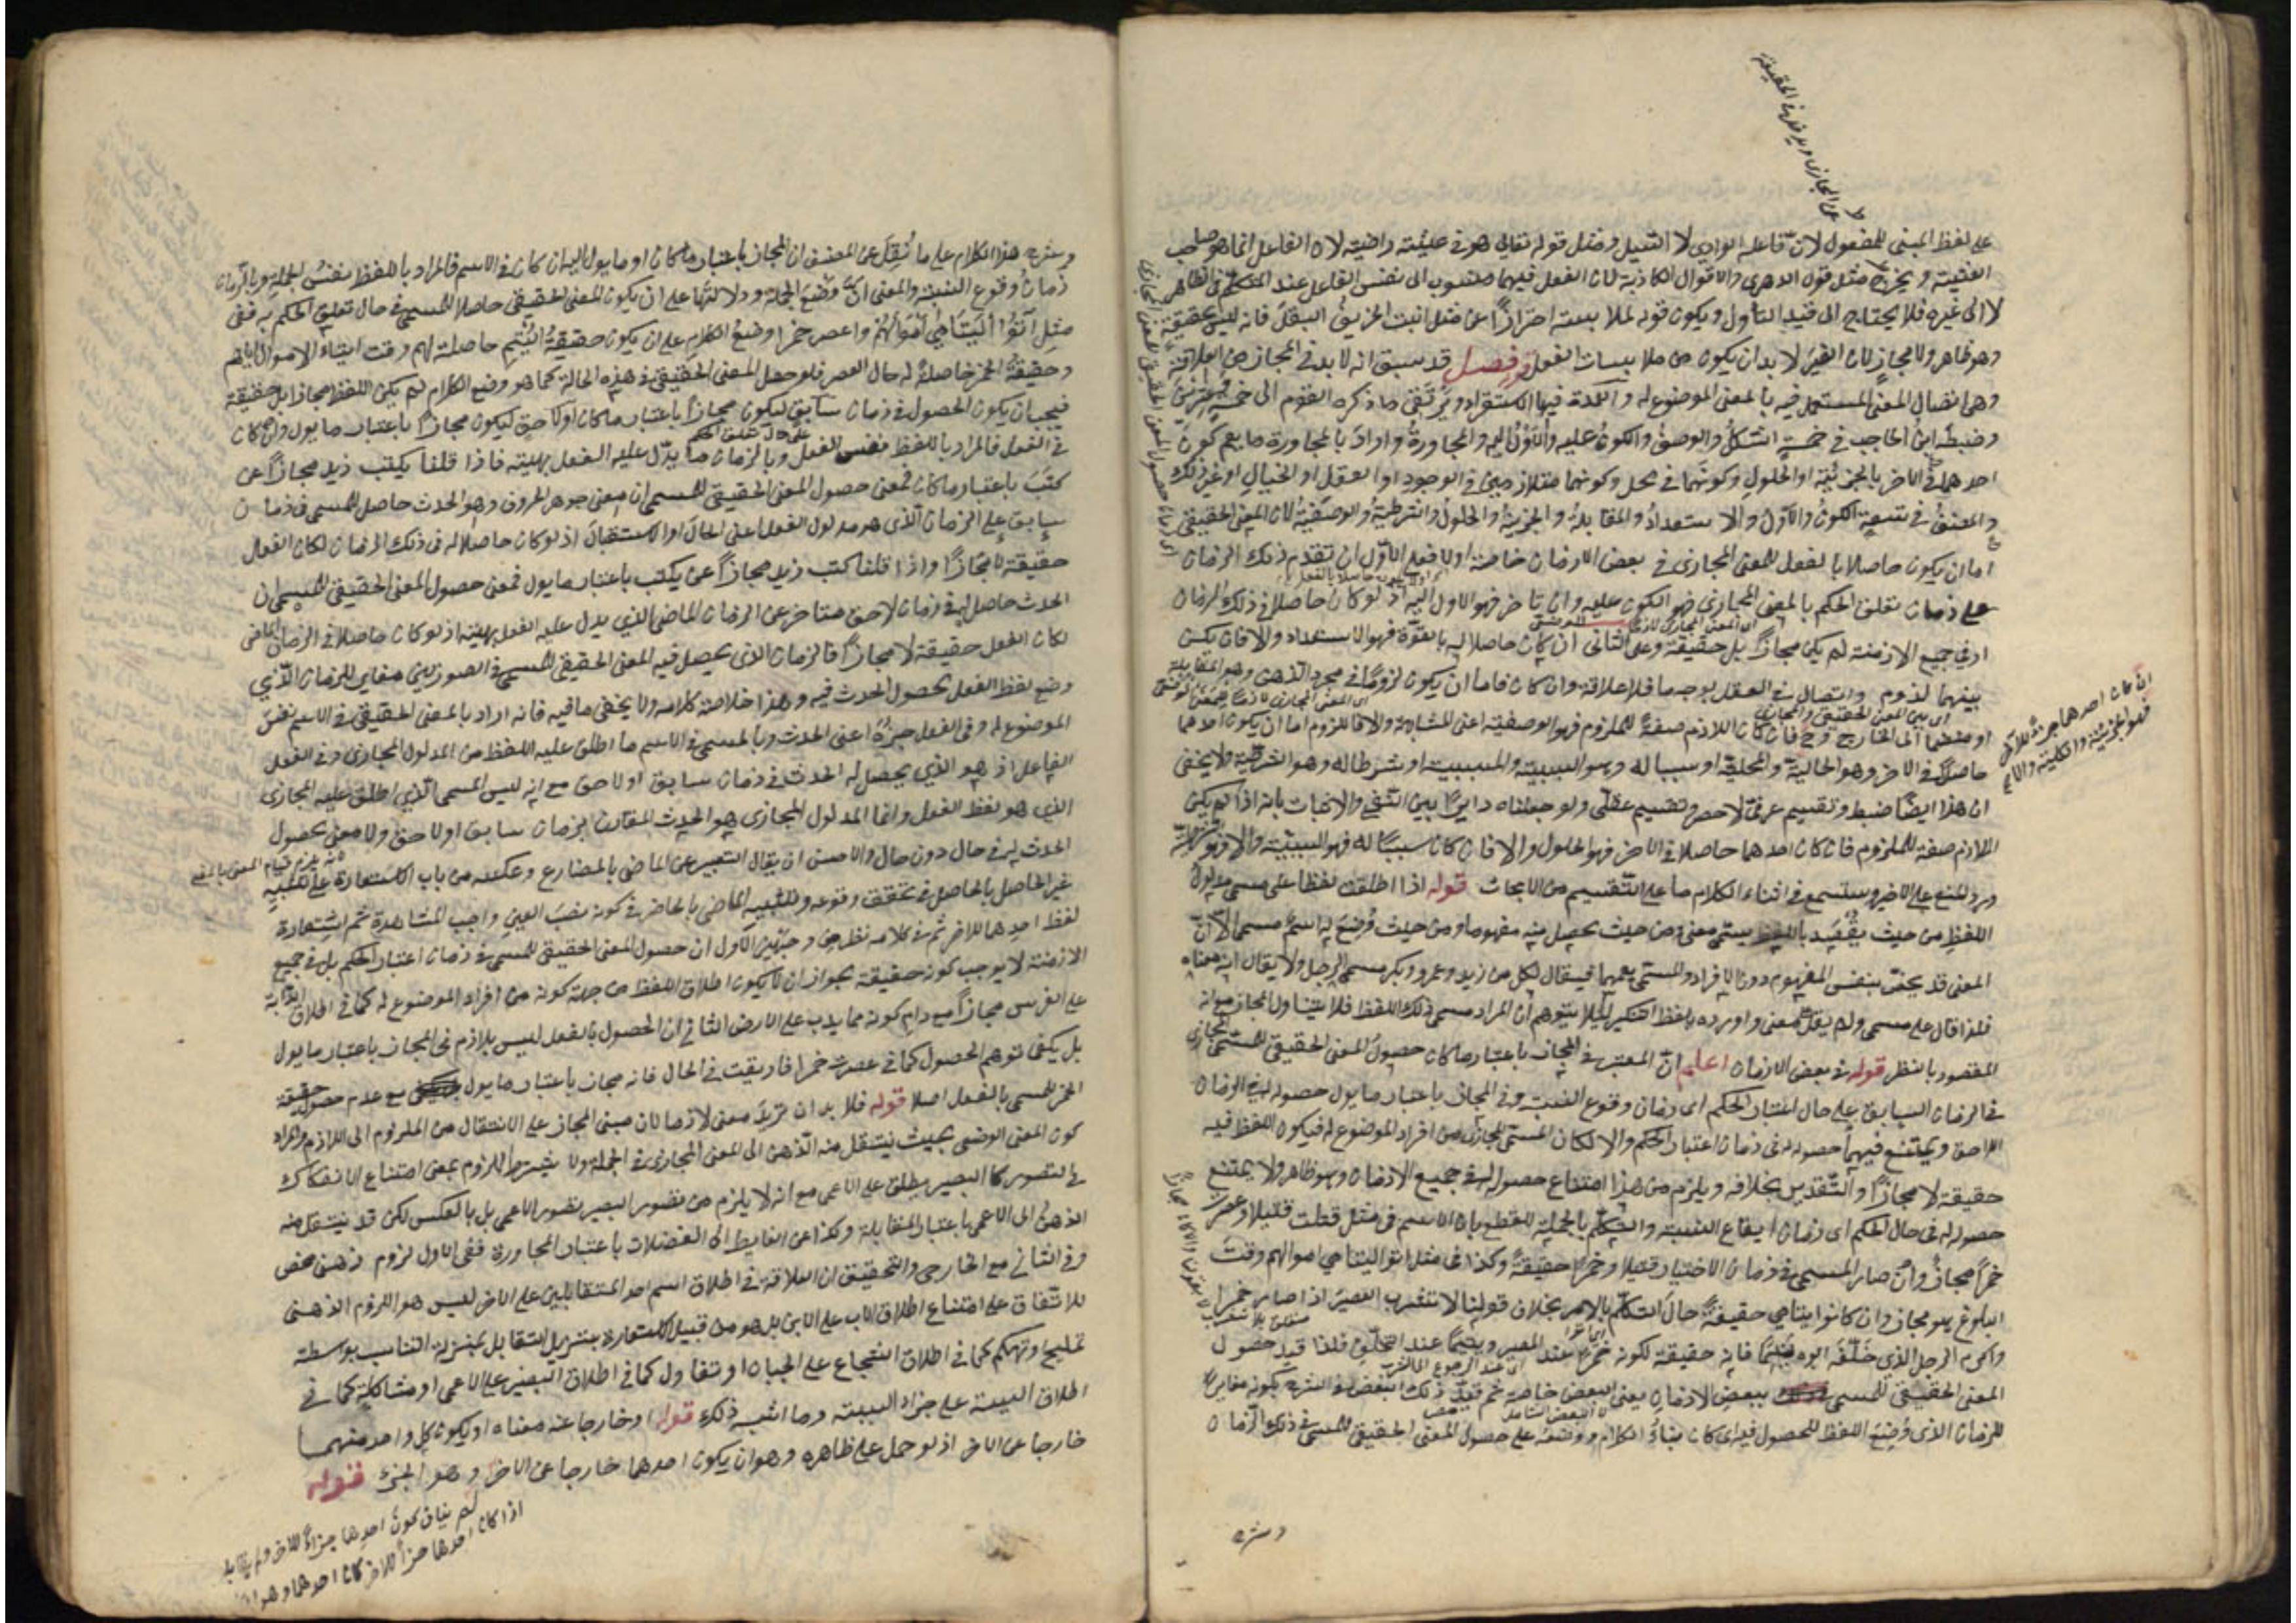 على لفظ المبنى للمفعول لان فاعله الوادي لا السيل ومثل قوله تعالى هو في عيشة راضية لان الفاعل انما هو صاحب
العيشة ويخرج مثل قول الدهري والاقوال الكاذبة لان الفعل فيهما منسوب الى نفس الفاعل عند المتكلم في الظاهر
لا الى غيره فلا يحتاج الى قيد التأول ويكون قوله لملابسته احترازا عن مثل انبت الخريف البقل فانه ليس بحقيقة
وهو ظاهر ولا مجاز لان الغير لا بد ان يكون من ملابسات الفعل قوله فصل قد سبق انه لا بد في المجاز من العلاقة
وهي اتصال المعنى المستعمل فيه بالمعنى الموضوع له والعمدة فيها الاستقراء ويرتقى ما ذكره القوم الى خمسة وعشرين
وضبطه ابن الحاجب في خمسة الشكل والوصف والكون عليه والاول اليه والمجاورة واراد بالمجاورة ما يعم كون
احدهما في الاخر بالجزئية او الحلول وكونهما في محل وكونهما متلازمين في الوجود او العقل او الخيال او غير ذلك
والمصنف في تسعة الكون والاول والاستعداد والمقابلة والجزئية والحلول والسببية والشرطية والوصفية لان المعنى الحقيقي
اما ان يكون حاصلا بالفعل للمعنى المجازي في بعض الازمان خاصة اولا فعلى الاول ان تقدم ذلك الزمان
على زمان تعلق الحكم بالمعنى المجازي فهو الكون عليه وان تأخر فهو الاول اليه اذ لو كان حاصلا في ذلك الزمان
او في جميع الازمنة لم يكن مجازا بل حقيقة وعلى الثاني ان كان حاصلا له بالقوة فهو الاستعداد والا فان لم يكن
بينهما لزوم واتصال في العقل بوجه ما فلا علاقة وان كان فاما ان يكون لزوما في مجرد الذهن وهو المقابلة
او منضما الى الخارج وح فان كان اللازم صفة للملزوم فهو الوصفية اعنى المشابهة والا فاللزوم اما ان يكون احدهما
حاصلا في الاخر وهو الحالية والمحلية او سببا له وهو السببية والمسببية او شرطا له وهو الشرطية ولا يخفى
ان هذا ايضا ضبط وتقسيم عرفي لا حصر وتقسيم عقلي ولو جعلناه دايرا بين النفي والاثبات بانه اذا لم يكن
اللازم صفة للملزوم فان كان احدهما حاصلا في الاخر فهو الحلول والا فان كان سببا له فهو السببية والا فهو الشرطية
ورد المنع على الاخير وستسمع في اثناء الكلام ما على التقسيم من الابحاث قوله اذا اطلقت لفظا على مسمى مدلول
اللفظ من حيث يقصد باللفظ يسمى معنى ومن حيث يحصل منه مفهوما ومن حيث وضع له اسم مسمى الا ان
المعنى قد يخص بنفس المفهوم دون الافراد والمسمى يعمهما فيقال لكل من زيد وعمرو وبكر مسمى الرجل ولا يقال انه معناه
فلذا قال على مسمى ولم يقل على معنى واورده بلفظ التنكير لئلا يتوهم ان المراد مسمى ذلك اللفظ فلا يتناول المجاز مع انه
المقصود بالنظر قوله في بعض الازمان اعلم ان المعتبر في المجاز باعتبار ما كان حصول المعنى الحقيقي للمسمى المجازي
في الزمان السابق على حال اعتبار الحكم اى زمان وقوع النسبة وفي المجاز باعتبار ما يول حصوله له في الزمان
اللاحق ويمتنع فيهما حصوله له في زمان اعتبار الحكم والا لكان المسمى المجازي من افراد الموضوع له فيكون اللفظ فيه
حقيقة لا مجازا والتقدير بخلافه ويلزم من هذا امتناع حصوله له في جميع الازمان وهو ظاهر ولا يمتنع
حصوله له في حال الحكم اى زمان ايقاع النسبة والتكلم بالجملة للقطع بان الاسم في مثل قتلت قتيلا وعصرت
خمرا مجاز وان صار المسمى في زمان الاخبار قتيلا وخمرا حقيقة وكذا في مثل اتوا اليتامى اموالهم وقت
البلوغ هو مجاز وان كانوا يتامى حقيقة حال التكلم بالامر بخلاف قولنا لا تشرب العصير اذا صار خمرا
واكرم الرجل الذي خلفه ابوه يتيما فانه حقيقة لكونه خمرا عند المصير ويتيما عند التخلف فلذا قيد حصول
المعنى الحقيقي للمسمى ببعض الازمان يعنى البعض خاصة ثم قيد ذلك البعض في الشرح بكونه مغايرا
للزمان الذي وضع اللفظ للحصول فيه اى كان بناء الكلام ووضعه على حصول المعنى الحقيقي للمسمى في ذلك الزمان
وشرح
وشرح هذا الكلام على ما نقل عن المصنف ان المجاز باعتبار ما كان او ما يول اليه ان كان في الاسم فالمراد باللفظ نفس الجملة وبالزمان
زمان وقوع النسبة والمعنى ان وضع الجملة ودلالتها على ان يكون المعنى الحقيقي حاصلا للمسمى في حال تعلق الحكم به ففى
مثل آتوا اليتامى اموالهم واعصر خمرا وضع الكلام على ان يكون حقيقة اليتم حاصلة لهم وقت ايتاء الاموال اياهم
وحقيقة الخمر حاصلة له حال العصر فلو حصل المعنى الحقيقي في هذه الحالة كما هو وضع الكلام لم يكن اللفظ مجازا بل حقيقة
فيجب ان يكون الحصول في زمان سابق ليكون مجازا باعتبار ما كان او لاحق ليكون مجازا باعتبار ما يول وان كان
في الفعل فالمراد باللفظ نفس الفعل وبالزمان ما يدل عليه الفعل بهيئته فاذا قلنا يكتب زيد مجازا عن
كتب باعتبار ما كان فمعنى حصول المعنى الحقيقي للمسمى ان معنى جوهر الحروف وهو الحدث حاصل للمسمى في زمان
سابق على الزمان الذي هو مدلول الفعل اعنى الحال او الاستقبال اذ لو كان حاصلا له في ذلك الزمان لكان الفعل
حقيقة لا مجازا واذا قلنا كتب زيد مجازا عن يكتب باعتبار ما يول فمعنى حصول المعنى الحقيقي للمسمى ان
الحدث حاصل له في زمان لاحق متاخر عن الزمان الماضي الذي يدل عليه الفعل بهيئته اذ لو كان حاصلا في الزمان الماضي
لكان الفعل حقيقة لا مجازا فالزمان الذي يحصل فيه المعنى الحقيقي للمسمى في الصورتين مغاير للزمان الذي
وضع لفظ الفعل لحصول الحدث فيه وهذا خلاصة كلامه ولا يخفى ما فيه فانه اراد بالمعنى الحقيقي في الاسم نفس
الموضوع له وفي الفعل جزءه اعنى الحدث وبالمسمى في الاسم ما اطلق عليه اللفظ من المدلول المجازي وفي الفعل
الفاعل اذ هو الذي يحصل له الحدث في زمان سابق او لاحق مع انه ليس المسمى الذي اطلق عليه المجازي
الذي هو لفظ الفعل وانما المدلول المجازي هو الحدث المقارن بزمان سابق او لاحق ولا معنى لحصول
الحدث له في حال دون حال والاحسن ان يقال التعبير عن الماضي بالمضارع وعكسه من باب الاستعارة على تشبيه
غير الحاصل بالحاصل في تحقق وقوعه وتشبيه الماضي بالحاضر في كونه نصب العين واجب المشاهدة ثم استعارة
لفظ احدهما للاخر ثم في كلامه نظر من وجهين الاول ان حصول المعنى الحقيقي للمسمى في زمان اعتبار الحكم بل في جميع
الازمنة لا يوجب كونه حقيقة لجواز ان لا يكون اطلاق اللفظ من جهة كونه من افراد الموضوع له كما في اطلاق الدابة
على الفرس مجازا مع دوام كونه مما يدب على الارض الثاني ان الحصول بالفعل ليس بلازم في المجاز باعتبار ما يول
بل يكفى توهم الحصول كما في عصرت خمرا فاريقت في الحال فانه مجاز باعتبار ما يول مع عدم حصول حقيقة
الخمر للمسمى بالفعل اصلا قوله فلا بد ان تريد معنى لازما لان مبنى المجاز على الانتقال من الملزوم الى اللازم والمراد
كون المعنى الوضعي بحيث ينتقل منه الذهن الى المعنى المجازي في الجملة ولا يشترط اللزوم بمعنى امتناع الانفكاك
في التصور كالبصير يطلق على الاعمى مع انه لا يلزم من تصور البصير تصور الاعمى بل بالعكس لكن قد ينتقل منه
الذهن الى الاعمى باعتبار المقابلة وكذا عن الغايط الى الفضلات باعتبار المجاورة ففى الاول لزوم ذهني محض
وفي الثاني مع الخارجي والتحقيق ان العلاقة في اطلاق اسم احد المتقابلين على الاخر ليس هو اللزوم الذهني
للاتفاق على امتناع اطلاق الاب على الابن بل هو من قبيل الاستعارة بتنزيل التقابل بمنزلة التناسب بواسطة
تمليح او تهكم كما في اطلاق الشجاع على الجبان او تفاول كما في اطلاق البصير على الاعمى او مشاكلة كما في
اطلاق السيئة على جزاء السيئة وما اشبه ذلك قوله او خارجا عنه معناه او يكون كل واحد منهما
خارجا عن الاخر اذ لو حمل على ظاهره وهو ان يكون احدهما خارجا عن الاخر وهو الجزء قوله
لم يناف كون احدهما جزءا للاخر ولم يقابله
اذا كان احدهما جزءا للاخر كان احدهما وهو